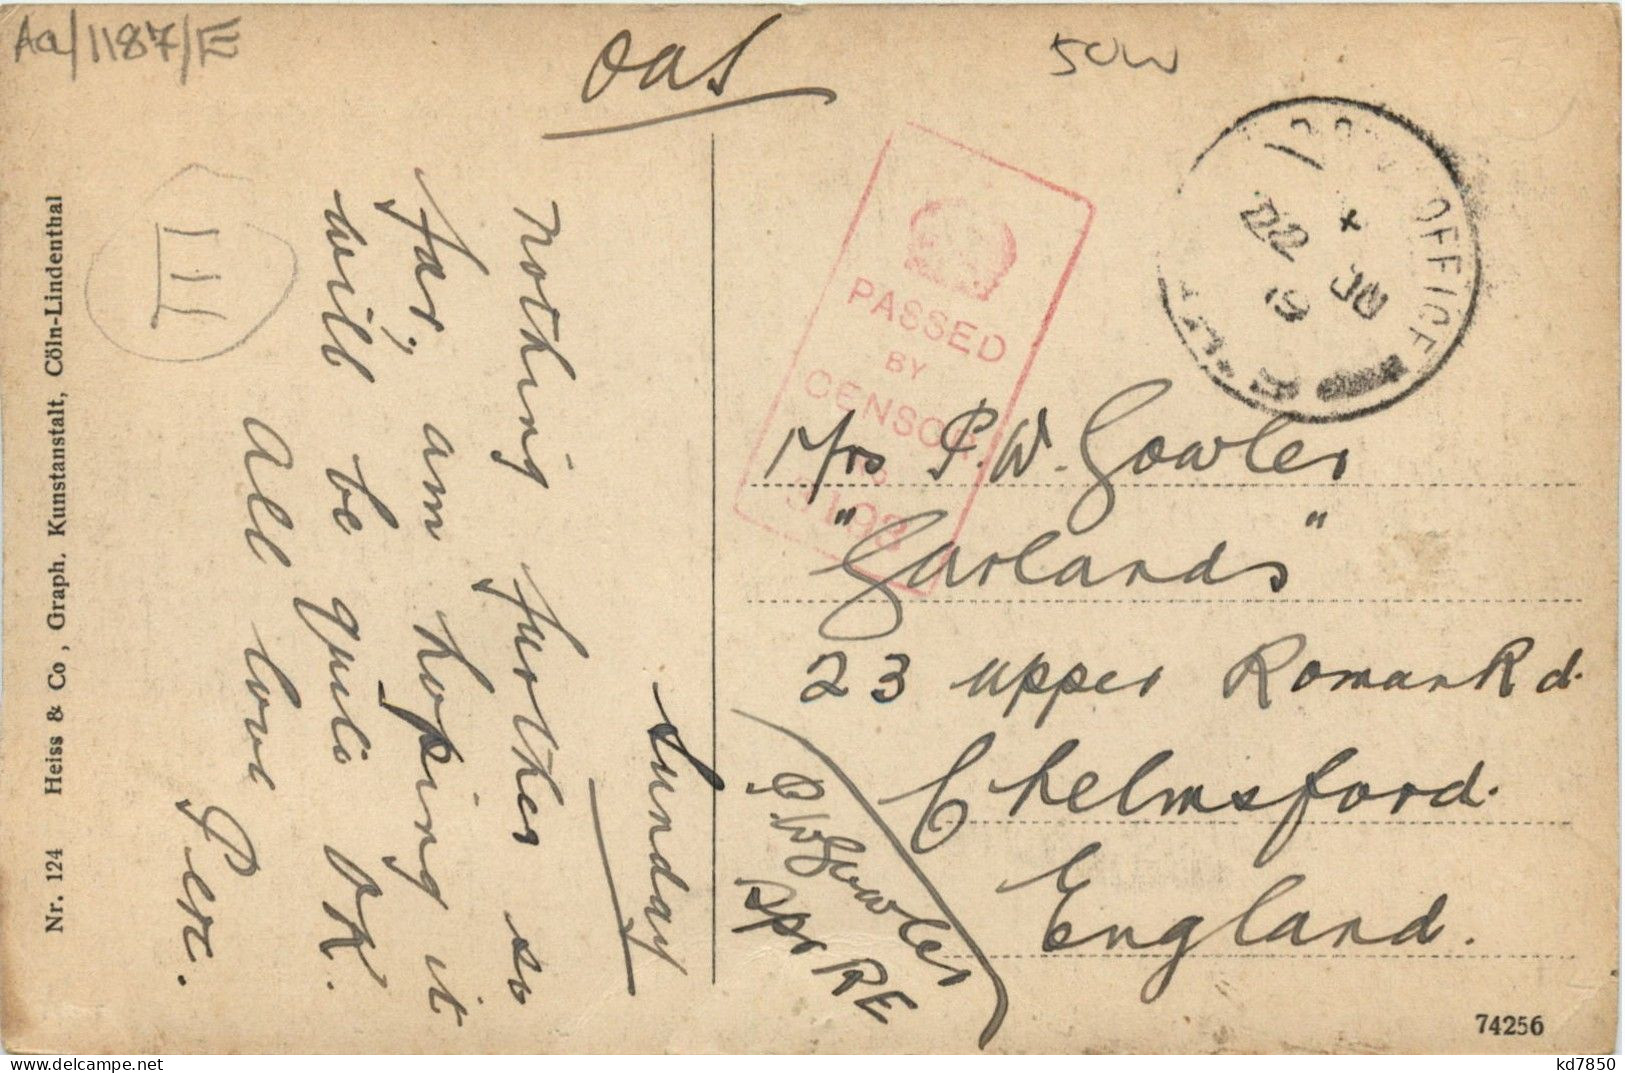 Aa/1187/E
OAS
50W
OFFICE
22 JU
19
PASSED
BY
CENSOR
Sunday
Nothing further so
far, am hoping it
will be quite OK.
All love
Perc.
Mrs P. W. Gowler
"Garlands"
23 Upper Roman Rd.
Chelmsford.
England.
P.W Gowler
Spr RE
Nr. 124 Heiss & Co, Graph. Kunstanstalt, Cöln-Lindenthal
74256
kd7850